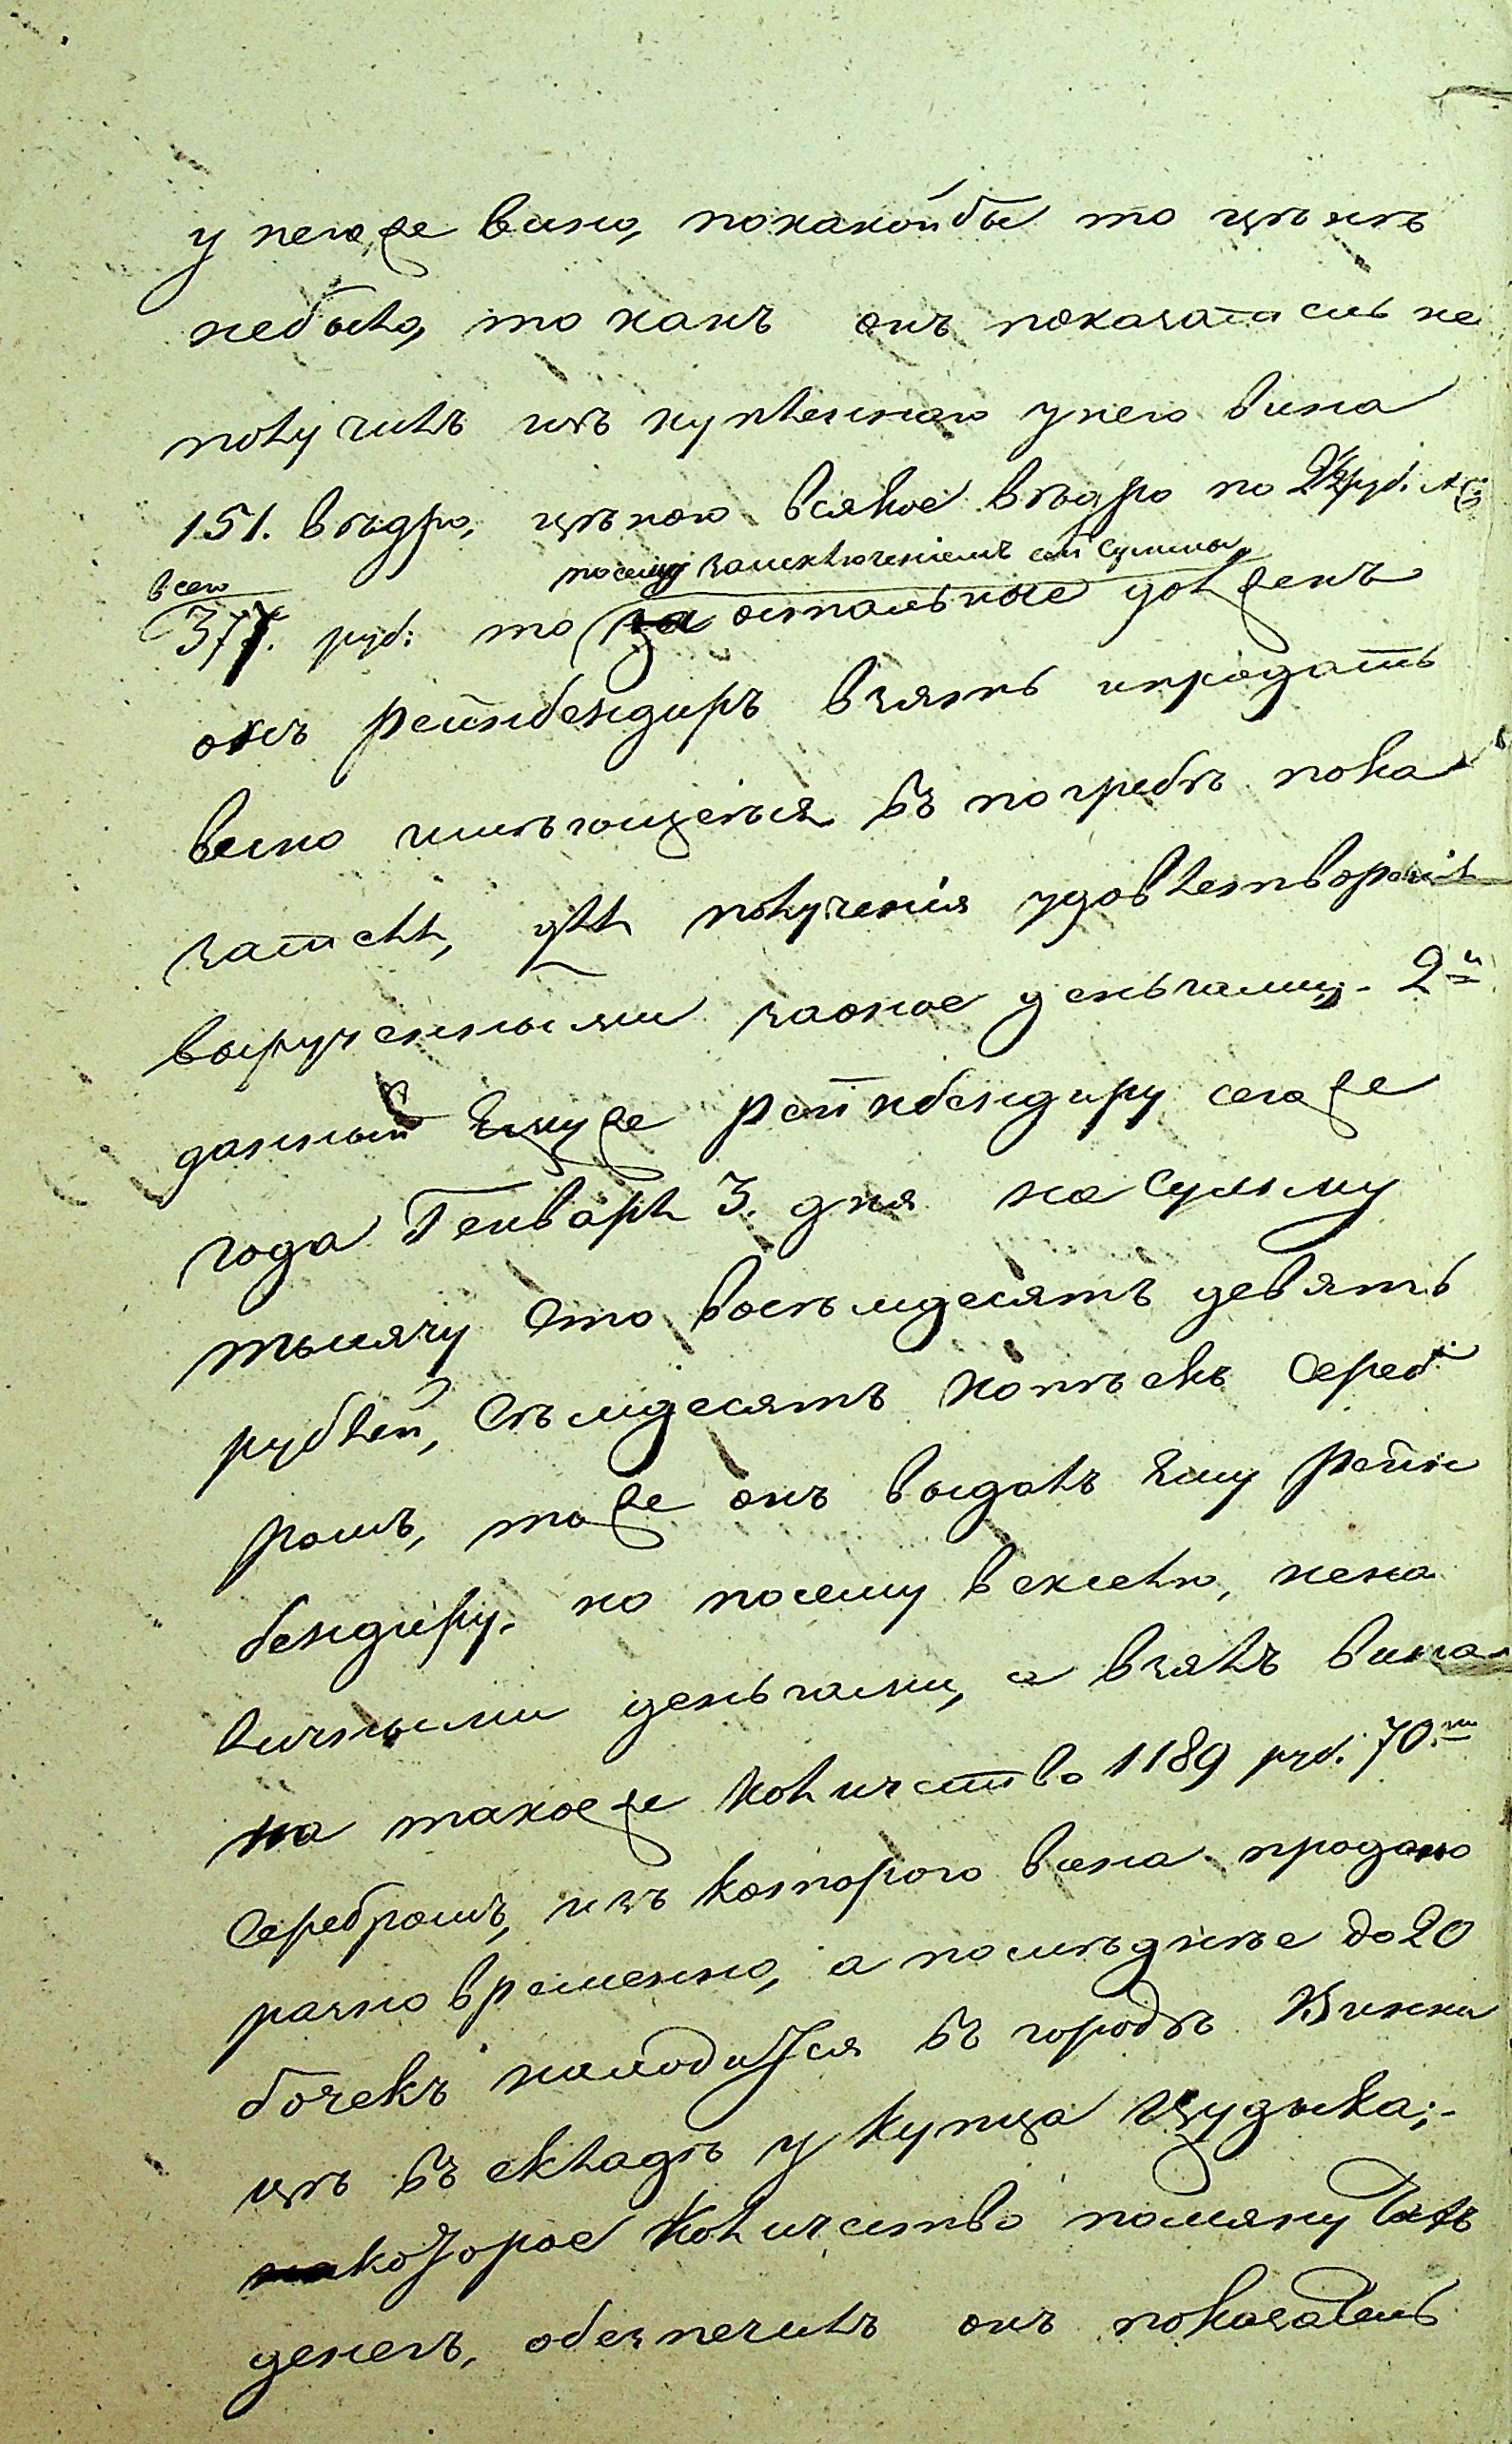 у негоже вино, покакойбы то цѣнѣ
небыло, то какъ онъ показатель не
получилъ изъ купленнаго унего вина
151. вѣдро, цѣною всякое вѣдро по 2½ руб. а
всего
посему заисключеніемъ сей суммы,
377. руб: то за остальные долженъ
онъ Рейнбендиръ взять ипродать
вино имѣющееся въ погребѣ пока
зателя, для полученія удовлетворенія
вырученными заоное деньгами;- 2й
данный Ему же Рейнбендиру сегоже
года Генваря 3. дня на сумму
тысячу сто восемдесятъ девять
рублей, семдесятъ копѣекъ сереб
ромъ, тоже онъ выдалъ Ему Рейн
бендиру, но посему векселю, нена
личными деньгами, а взялъ вина
на такоеже количество 1189 руб. 70.
серебромъ, изъ котораго вина продано
разновременно, а послѣднѣе до 20
бочекъ находится въ городѣ Винни
цѣ въ складѣ у купца Цудыка;-
накоторое количество помянутыхъ
денегъ, обезпечилъ онъ показатель